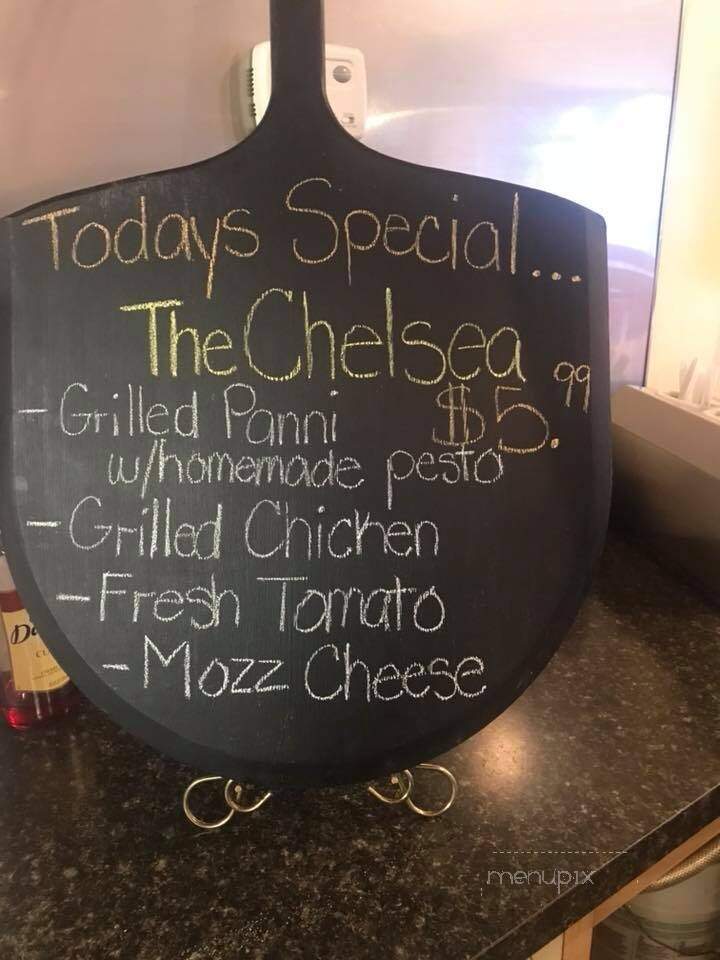 Todays Special...
The Chelsea
- Grilled Panni $5.99
w/homemade pesto
- Grilled Chicken
- Fresh Tomato
- Mozz Cheese
menupix